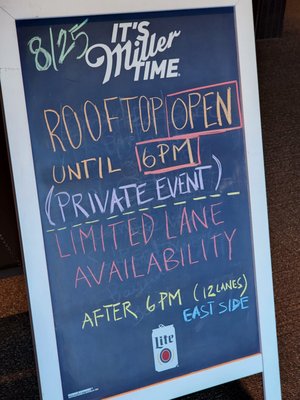 8/25
IT'S
Miller
TIME
ROOFTOP OPEN
UNTIL 6PM
(PRIVATE EVENT)
LIMITED LANE
AVAILABILITY
AFTER 6PM (12 LANES)
EAST SIDE
Lite